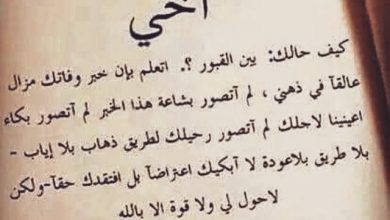 أخي
كيف حالك: بين القبور ؟. اتعلم بإن خبر وفاتك مزال
عالقآ في ذهني ، لم آتصور بشاعة هذا الخبر لم آتصور بكاء
اعيننا لاجلك لم آتصور رحيلك لطريق ذهاب بلا إياب -
بلا طريق بلاعودة لا آبكيك اعتراضآ بل افتقدك حقآ-ولكن
لاحول لي ولا قوة الا بالله